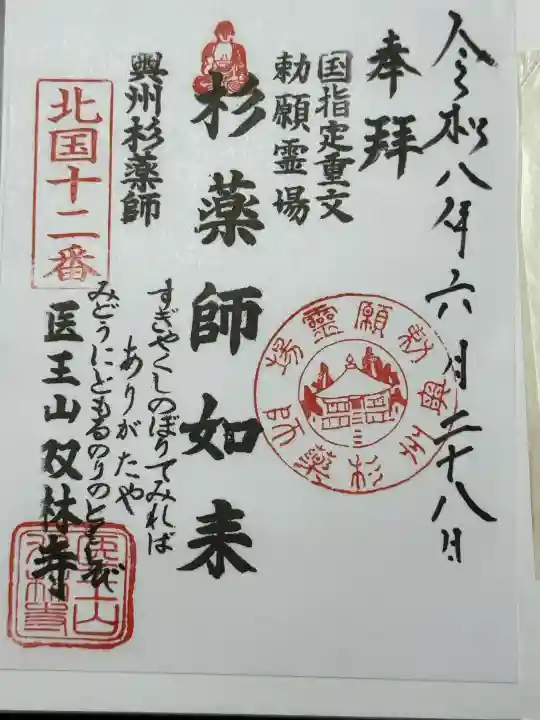 令和八年六月二十八日
奉拝
国指定重文
勅願霊場
杉薬師如来
興州杉薬師
北国十二番
すぎやくしのぼりてみれば
ありがたや
みどうにともるのりのともしび
医王山双林寺
勅願霊場
奥州杉薬師